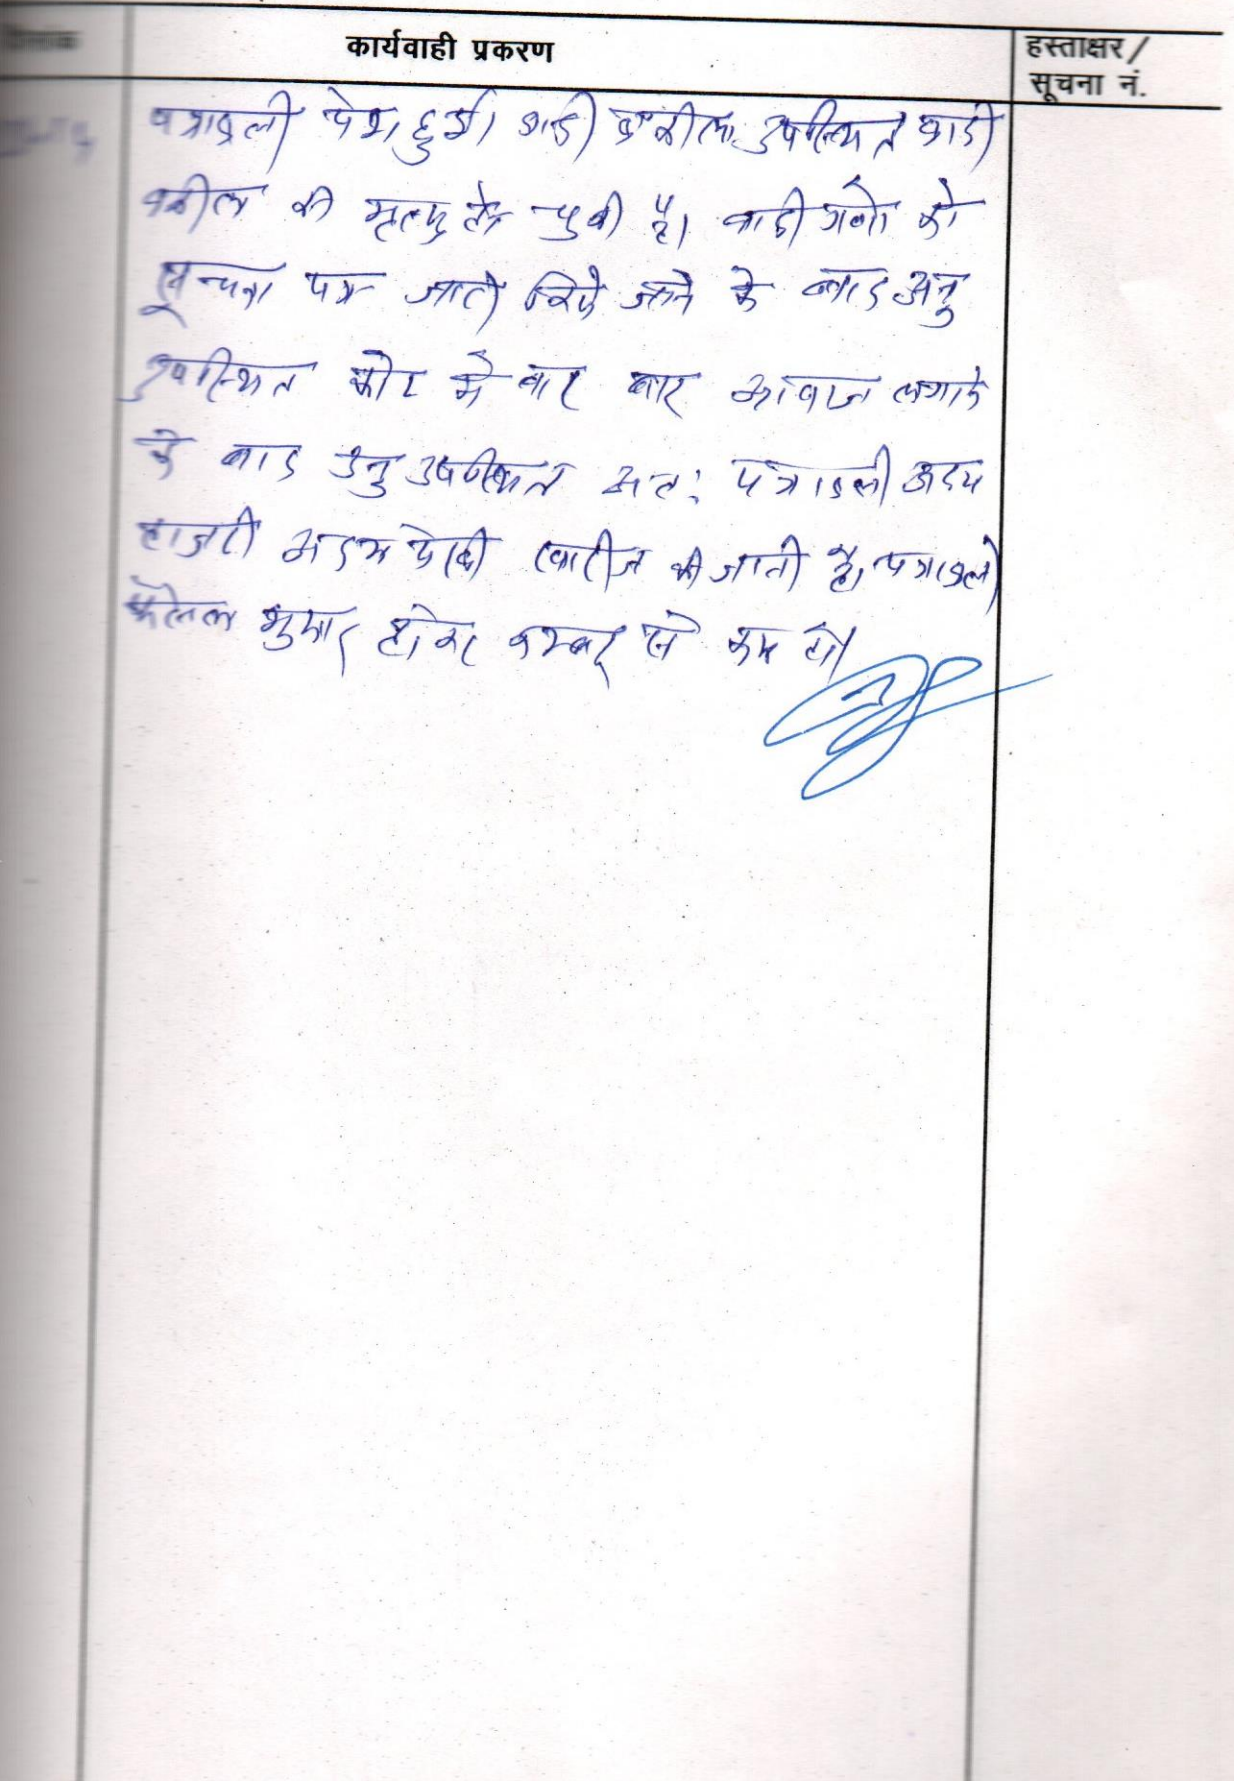 कार्यवाही प्रकरण
हस्ताक्षर/
सूचना नं.
पत्रावली पेश हुई। वादी वकील उपस्थित वादी
वकील की मृत्यु हो चुकी है। वादी गणो को
सूचना पत्र जारी किऐ जाने के बाद अनु
उपस्थित कोर्ट मे बार बार आवाज लगाने
के बाद अनु उपस्थित अतः पत्रावली अदम
हाजरी अदम पेरवी खारीज की जाती है। पत्रावली
फैसल शुमार होकर नम्बर से कम हो।